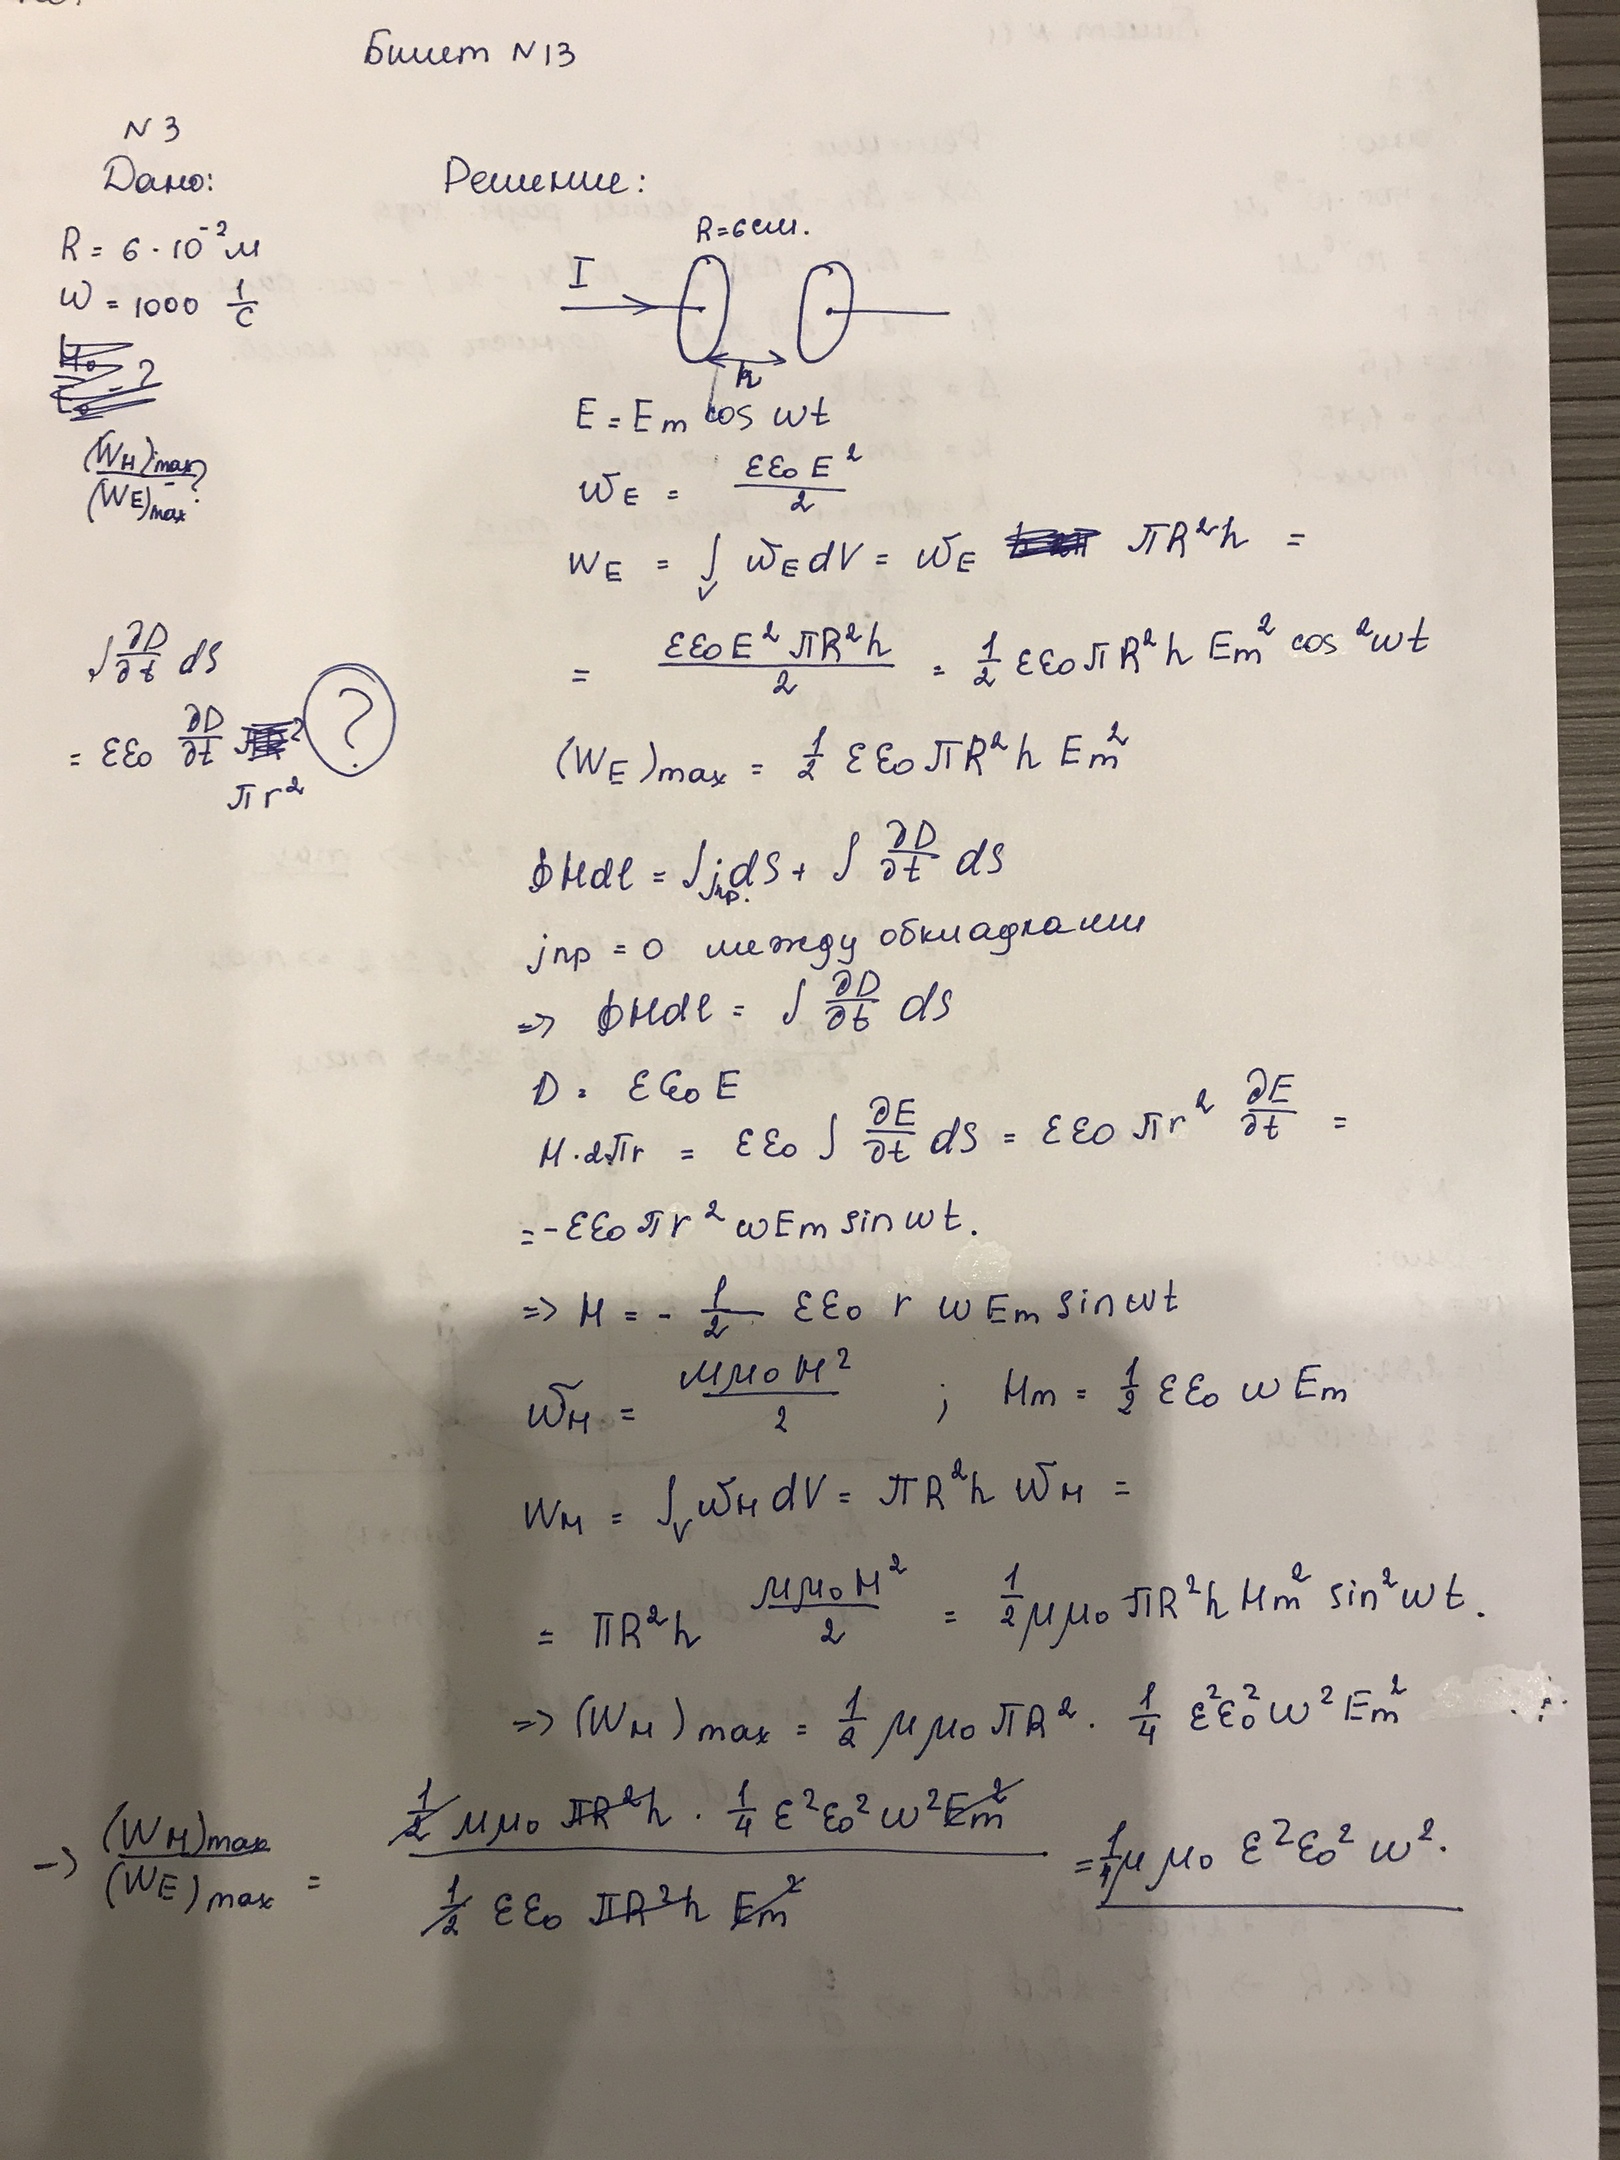 Билет N13
N3
Дано:
R = 6 · 10⁻² м
ω = 1000 1/с
(W_H)max / (W_E)max - ?
∫ ∂D/∂t dS
= εε₀ ∂D/∂t πr² ?
Решение:
R = 6 см.
I
h
E = E_m cos ωt
w_E = εε₀E²/2
W_E = ∫_V w_E dV = w_E πR²h =
= εε₀E²πR²h/2 = 1/2 εε₀πR²h E_m² cos²ωt
(W_E)max = 1/2 εε₀πR²h E_m²
∮Hdl = ∫j_пр. dS + ∫ ∂D/∂t dS
j_пр = 0 между обкладками
=> ∮Hdl = ∫ ∂D/∂t dS
D = εε₀E
H·2πr = εε₀ ∫ ∂E/∂t dS = εε₀ πr² ∂E/∂t =
= -εε₀πr² ωE_m sin ωt.
=> H = - 1/2 εε₀ r ω E_m sin ωt
w_H = μμ₀H²/2 ; H_m = 1/2 εε₀ ω E_m
W_H = ∫_V w_H dV = πR²h w_H =
= πR²h μμ₀H²/2 = 1/2 μμ₀ πR²h H_m² sin²ωt.
=> (W_H)max = 1/2 μμ₀ πR² · 1/4 ε²ε₀²ω²E_m²
-> (W_H)max / (W_E)max = 1/2 μμ₀ πR²h · 1/4 ε²ε₀²ω²E_m² / 1/2 εε₀ πR²h E_m² = 1/4 μμ₀ ε²ε₀² ω².